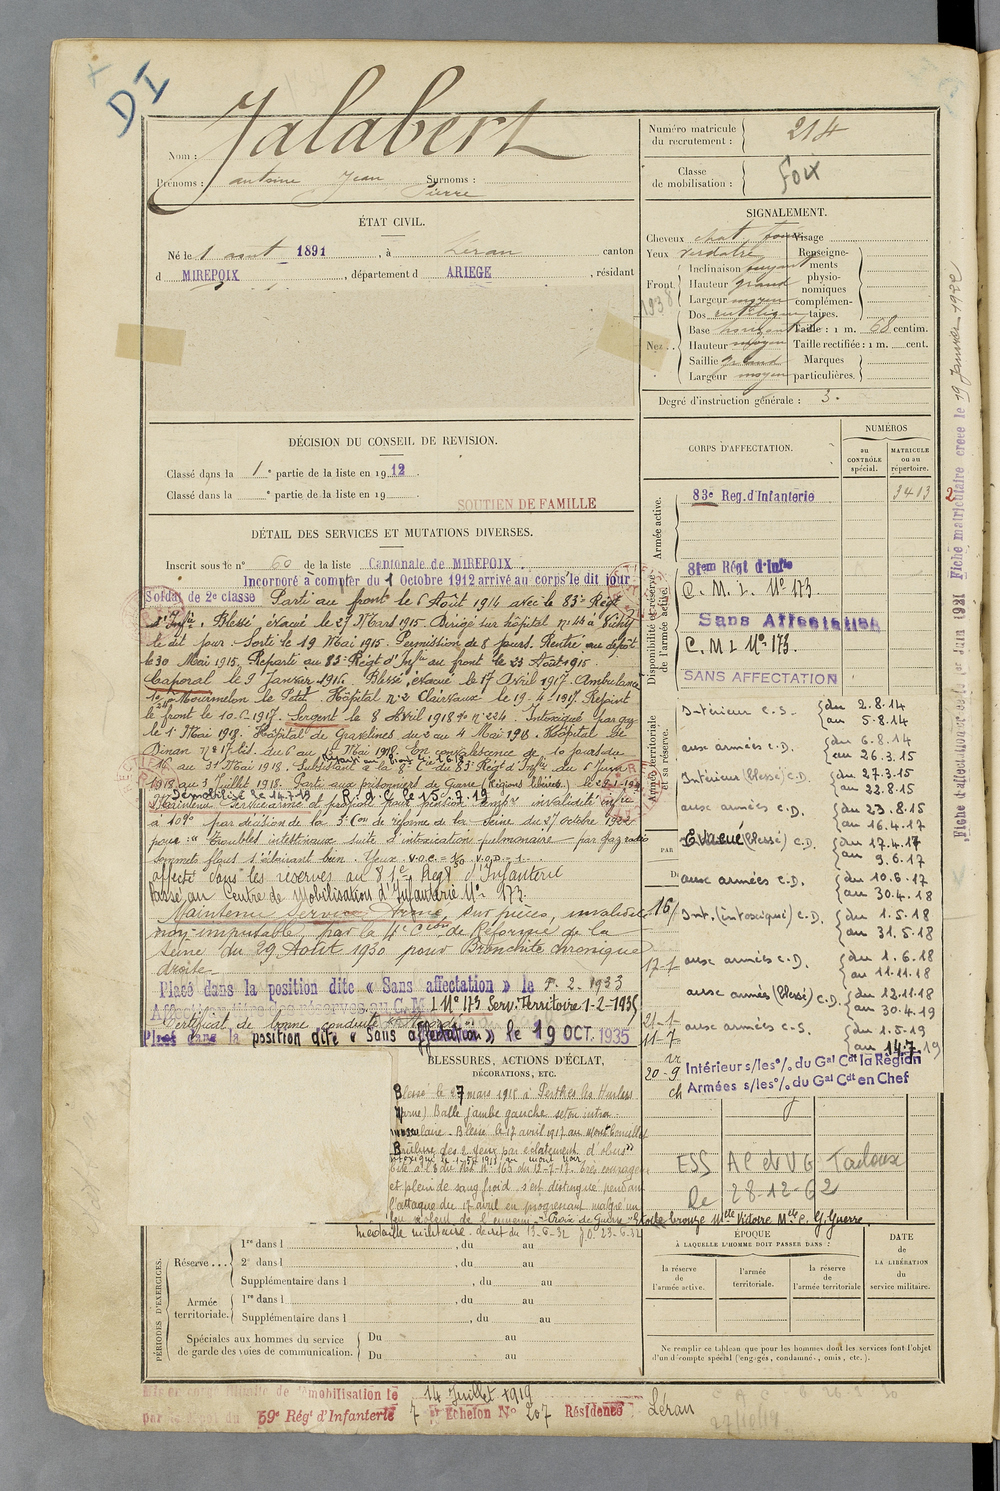 DI
Nom : Jalabert
Prénoms : Antoine Jean Surnoms :
Pierre
Numéro matricule
du recrutement : 214
Classe
de mobilisation : Foix
ÉTAT CIVIL.
Né le 1 aout 1891, à Léran canton
d MIREPOIX, département d ARIEGE, résidant
SIGNALEMENT.
Cheveux chat. Visage
Yeux verdatre Renseigne-
Inclinaison moyen ments
Front. Hauteur grand physio-
Largeur moyen nomiques
Dos complémen-
taires.
Base Taille : 1 m. 68 centim.
Nez .. Hauteur moyen Taille rectifiée : 1 m. cent.
Saillie grand Marques
Largeur moyen particulières.
Degré d'instruction générale : 3.
1938
DÉCISION DU CONSEIL DE REVISION.
Classé dans la 1e partie de la liste en 1912.
Classé dans la e partie de la liste en 19
SOUTIEN DE FAMILLE
DÉTAIL DES SERVICES ET MUTATIONS DIVERSES.
Inscrit sous le n° 60 de la liste Cantonale de MIREPOIX
Incorporé à compter du 1 Octobre 1912 arrivé au corps le dit jour
Soldat de 2e classe Parti au front le 6 Août 1914 avec le 83e Régt
d'Infie. Blessé évacué le 27 Mars 1915. Dirigé sur hôpital n° 44 à Vichy
le dit jour. Sorti le 19 Mai 1915. Permission de 8 jours. Rentré au dépôt
le 30 Mai 1915. Reparti au 83e Régt d'Infie au front le 23 Août 1915.
Caporal le 9 Janvier 1916. Blessé évacué le 17 Avril 1917. Ambulance
Mourmelon le Petit. Hôpital n° 2 Clairvaux le 19-4-1917. Rejoint
le front le 10.6.1917. Sergent le 8 Avril 1918 n° 224. Intoxiqué par gaz
le 1er Mai 1918. Hôpital de Gravelines du 2 au 4 Mai 1918. Hôpital de
Dinan n° 17 du 6 au Mai 1918. En convalescence de 10 jours du
au 31 Mai 1918. Subsistant à la 8e Cie du 83e Régt d'Infie du 6 Juin
1918 au 3 Juillet 1918. Parti aux prisonniers de Guerre
Démobilisé le 14.7.19 R. d. C. le 15.7.19
Maintenu service armé et proposé pour pension temp. invalidité infre
à 10% par décision de la 3e Con de réforme de la Seine du 27 octobre 1922
pour « Troubles intestinaux suite d'intoxication pulmonaire par gaz
sommets flous s'éclairant bien. Yeux V.O.G. = V.O.D. = 1.
affecté dans les réserves au 81e Régt d'Infanterie
Passé au Centre de Mobilisation d'Infanterie N° 173.
Maintenu Service Armé, sur pièces, invalidité
non-imputable, par la 4e Cion de Réforme de la
Seine du 29 Août 1930 pour Bronchite chronique
droite.
Placé dans la position dite « Sans affectation » le 2. 1933
Affecté réserves au C. M. I N° 173 Serv. Territoire 1-2-1935
Certificat de bonne conduite
Placé dans la position dite « Sans affectation » le 19 OCT. 1935
BLESSURES, ACTIONS D'ÉCLAT,
DÉCORATIONS, ETC.
Blessé le 27 mars 1915 à Perthes les Hurlus
(Marne) Balle jambe gauche seton intra
musculaire - Blessé le 17 avril 1917 au Mont Cornillet
Brûlure des 2 yeux par éclatement d'obus
Cité à l'O du Régt N° 163 du 12-7-17. très courageux
et plein de sang froid s'est distingué pendant
l'attaque du 17 avril en progressant malgré un
feu violent de l'ennemi - Croix de Guerre - Etoile bronze Mlle Victoire Mlle C. G. Guerre.
Médaille militaire. décret du 13-6-32 JO. 23-6-32
CORPS D'AFFECTATION.
NUMÉROS
au CONTRÔLE spécial.
MATRICULE ou au répertoire.
Armée active.
83e Reg. d'Infanterie 3413
Disponibilité et réserve de l'armée active.
81em Régt d'Infie
C. M. I. N° 173.
Sans Affectation
C. M I N° 173.
SANS AFFECTATION
Armée territoriale et sa réserve.
Intérieur C.S. du 2.8.14
au 5.8.14
aux armées C.D. du 6.8.14
au 26.3.15
Intérieur (blessé) C.D. du 27.3.15
au 22.8.15
aux armées C.D. du 23.8.15
au 16.4.17
Evacué (blessé) C.D. du 17.4.17
au 9.6.17
aux armées C.D. du 10.6.17
au 30.4.18
Int. (intoxiqué) C.D. du 1.5.18
au 31.5.18
aux armées C.D. du 1.6.18
au 11.11.18
aux armées (blessé) C.D. du 12.11.18
au 30.4.19
aux armées C.S. du 1.5.19
au 14.7.19
PAR
16/
17-1
21-1-
11-7-
20-9
ch
Intérieur s/les o/. du Gal Cdt la Région
Armées s/les o/. du Gal Cdt en Chef
ESS AC et VG Toulouse
le 28-12-62
ÉPOQUE
À LAQUELLE L'HOMME DOIT PASSER DANS :
la réserve de l'armée active.
l'armée territoriale.
la réserve de l'armée territoriale
DATE
de
LA LIBÉRATION
du
service militaire.
Ne remplir ce tableau que pour les hommes dont les services font l'objet
d'un décompte spécial (engagés, condamnés, omis, etc.).
PÉRIODES D'EXERCICES.
Réserve ... 1re dans l , du au
2e dans l , du au
Supplémentaire dans l , du au
Armée territoriale. 1re dans l , du au
Supplémentaire dans l , du au
Spéciales aux hommes du service
de garde des voies de communication. Du au
Du au
Mis en congé illimité de démobilisation le 14 Juillet 1919
par le dépôt du 59e Régt d'Infanterie 7e Echelon N° 207 Résidence Léran
Fiche d'affectation créée le 1er Juin 1921 Fiche matriculaire créée le 19 Janvier 1922